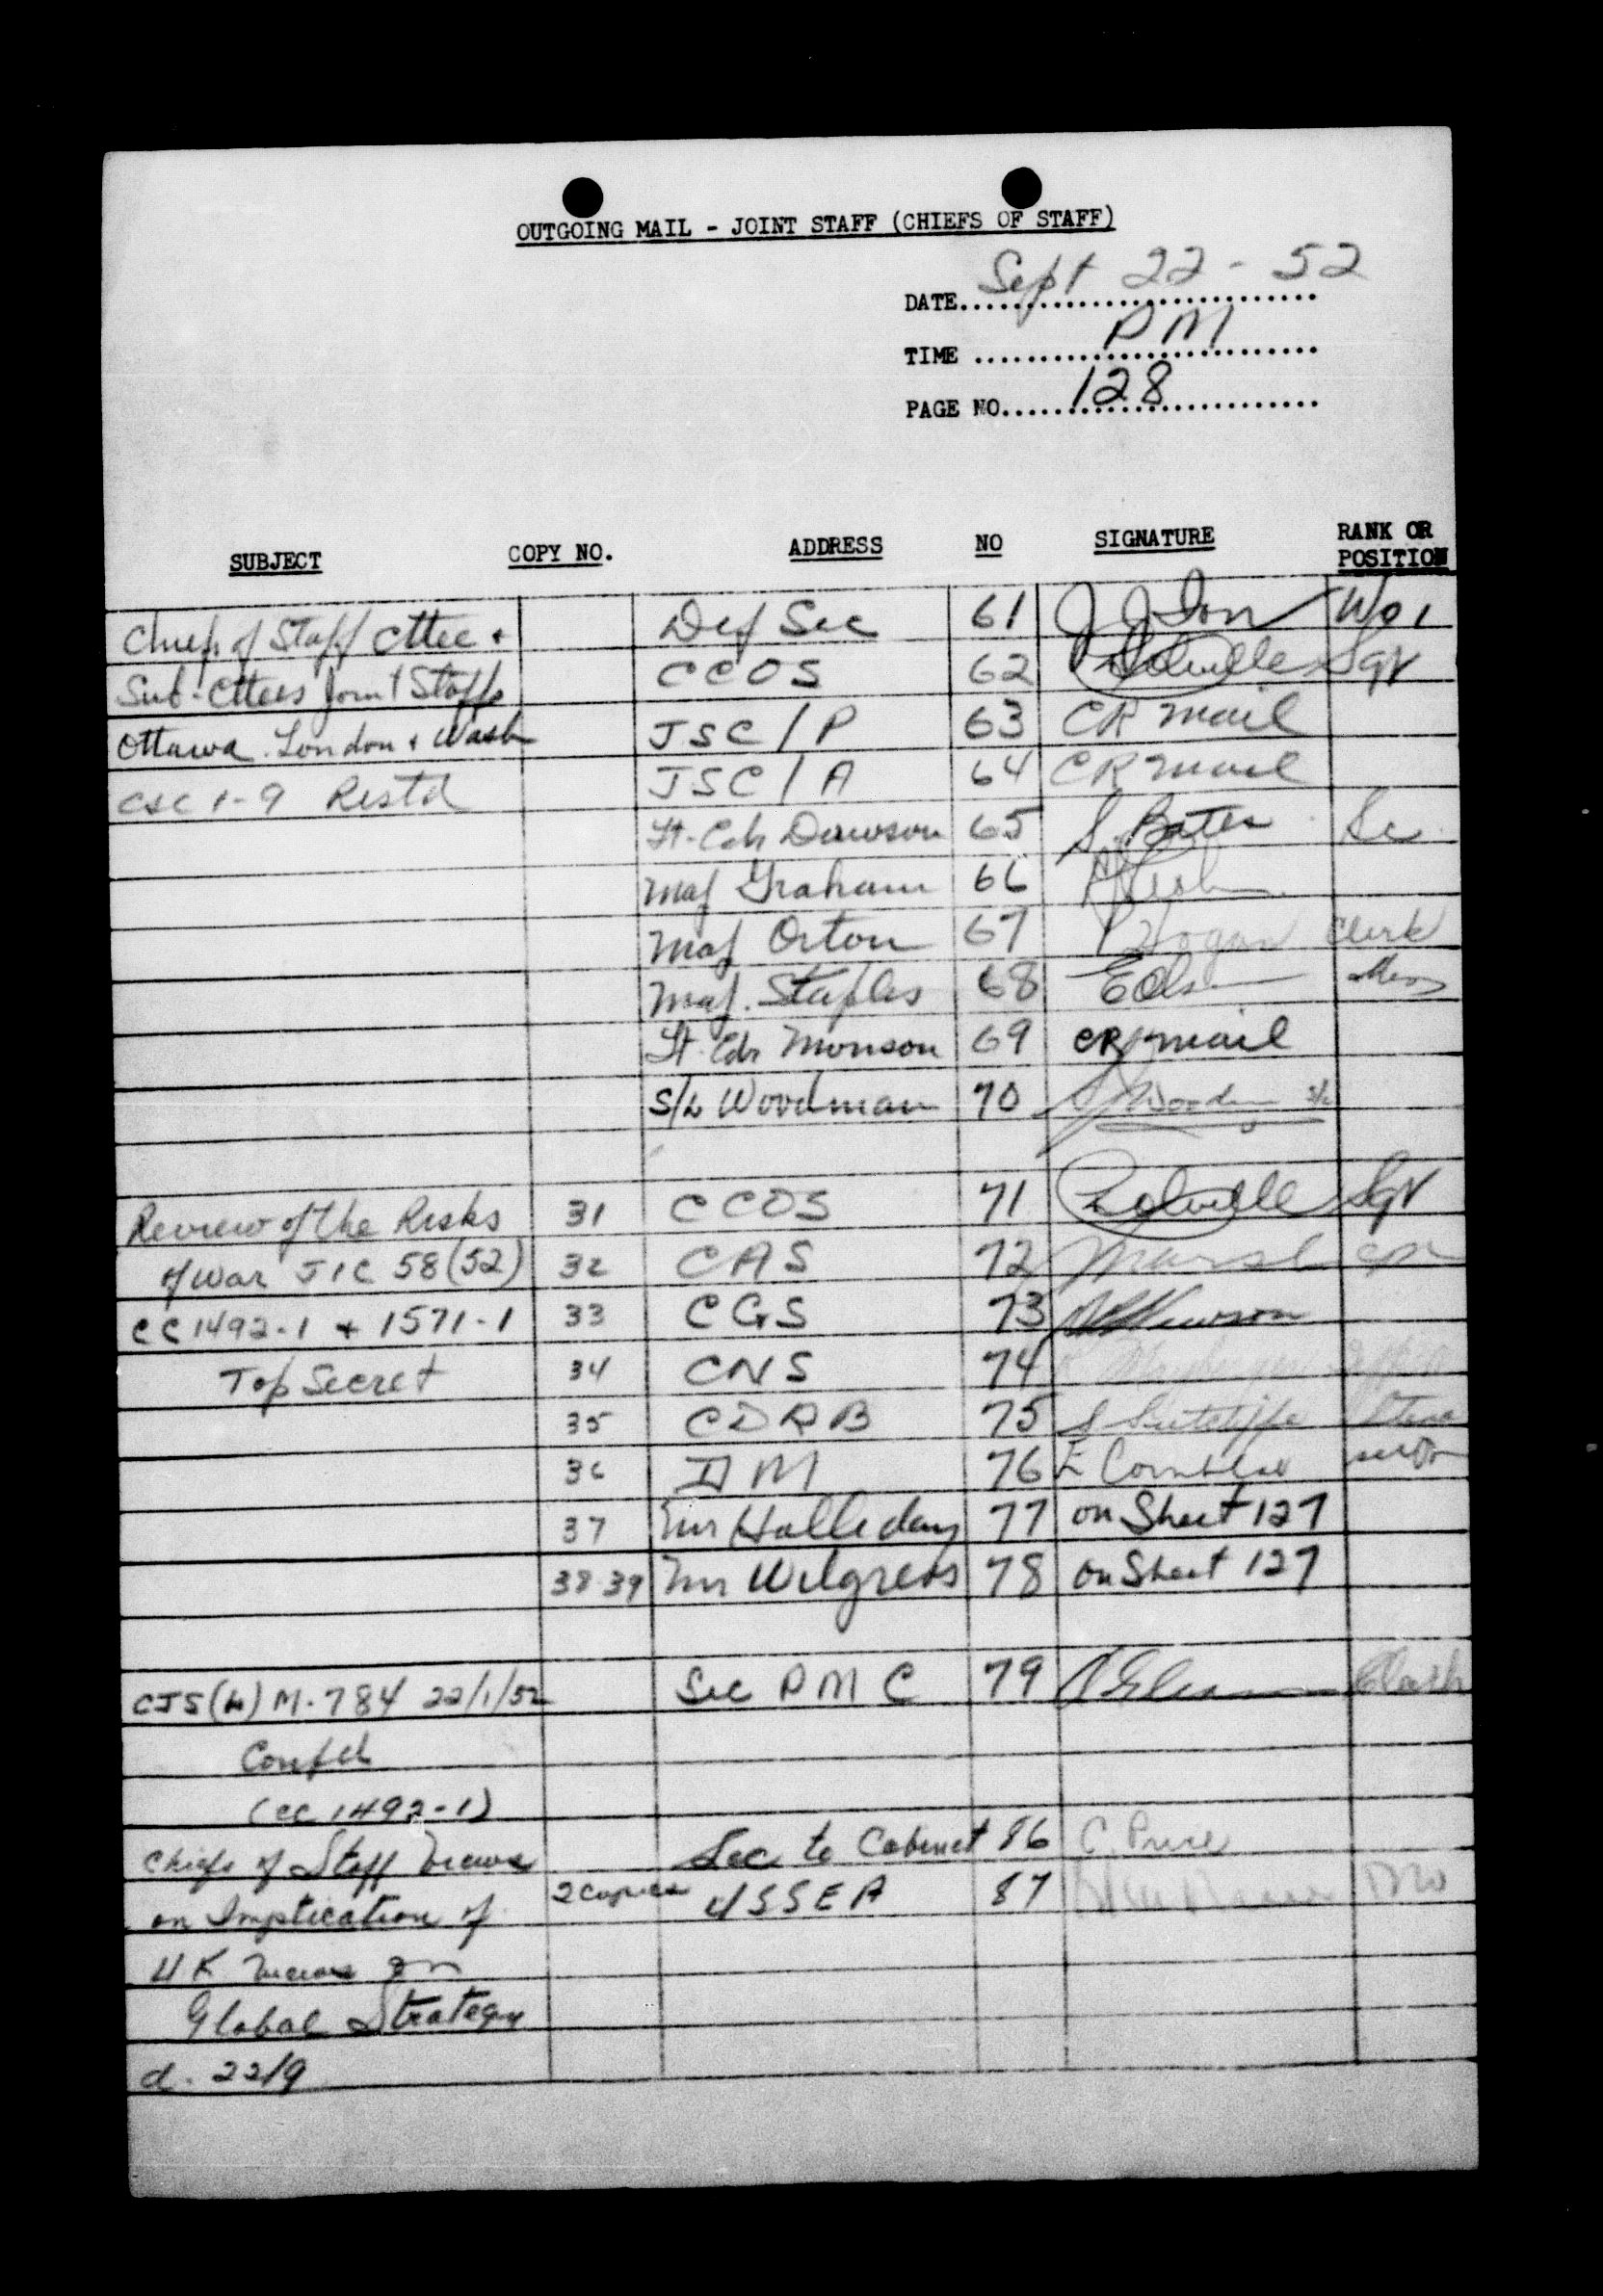 OUTGOING MAIL - JOINT STAFF (CHIEFS OF STAFF)
DATE Sept 22 - 52
TIME PM
PAGE NO. 128
SUBJECT COPY NO. ADDRESS NO SIGNATURE RANK OR POSITION
Chiefs of Staff Cttee + Def Sec 61 WO1
Sub-Cttees Joint Staffs CCOS 62 Sgt
Ottawa London + Wash JSC/P 63 CR Mail
CSC 1-9 Restd JSC/A 64 CR Mail
Lt-Cdr Dawson 65 S. Bates
Maj Graham 66
Maj Orton 67 Hogan Clerk
Maj. Staples 68
Lt. Cdr Monson 69 CR Mail
S/L Woodman 70 S/L
Review of the Risks 31 CCOS 71 Sgt
of War JIC 58(52) 32 CAS 72
CC 1492-1 + 1571-1 33 CGS 73
Top Secret 34 CNS 74
35 CDRB 75 S Sutcliffe Steno
36 DM 76
37 Mr Halliday 77 on Sheet 127
38-39 Mr Wilgress 78 on Sheet 127
CJS(L) M-784 22/1/52 Sec PMC 79
Confd
(CC 1492-1)
Chiefs of Staff Views Sec to Cabinet 86
on Implication of 2 copies USSEA 87
UK Views on
Global Strategy
d. 22/9